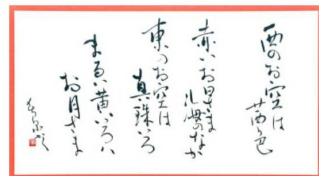 西のお空は
茜色
赤いお日さま
海のなか
東のお空は
真珠いろ
まるい黄いろい
お月さま